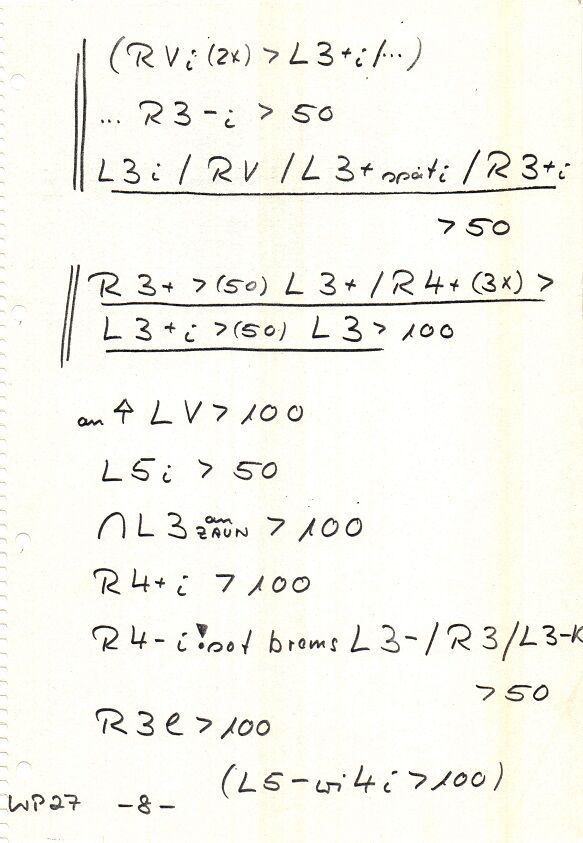 (RVi (2x) > L3+i /...)
... R3-i > 50
L3i / RV / L3+ späti / R3+i
> 50
R3+ >(50) L3+ / R4+ (3x) >
L3+i >(50) L3 > 100
an ⇧ LV > 100
L5i > 50
∩ L3 an ZAUN > 100
R4+i > 100
R4-i ! sof brems L3- / R3 / L3-K
> 50
R3e > 100
(L5-wi4i > 100)
WP27 -8-